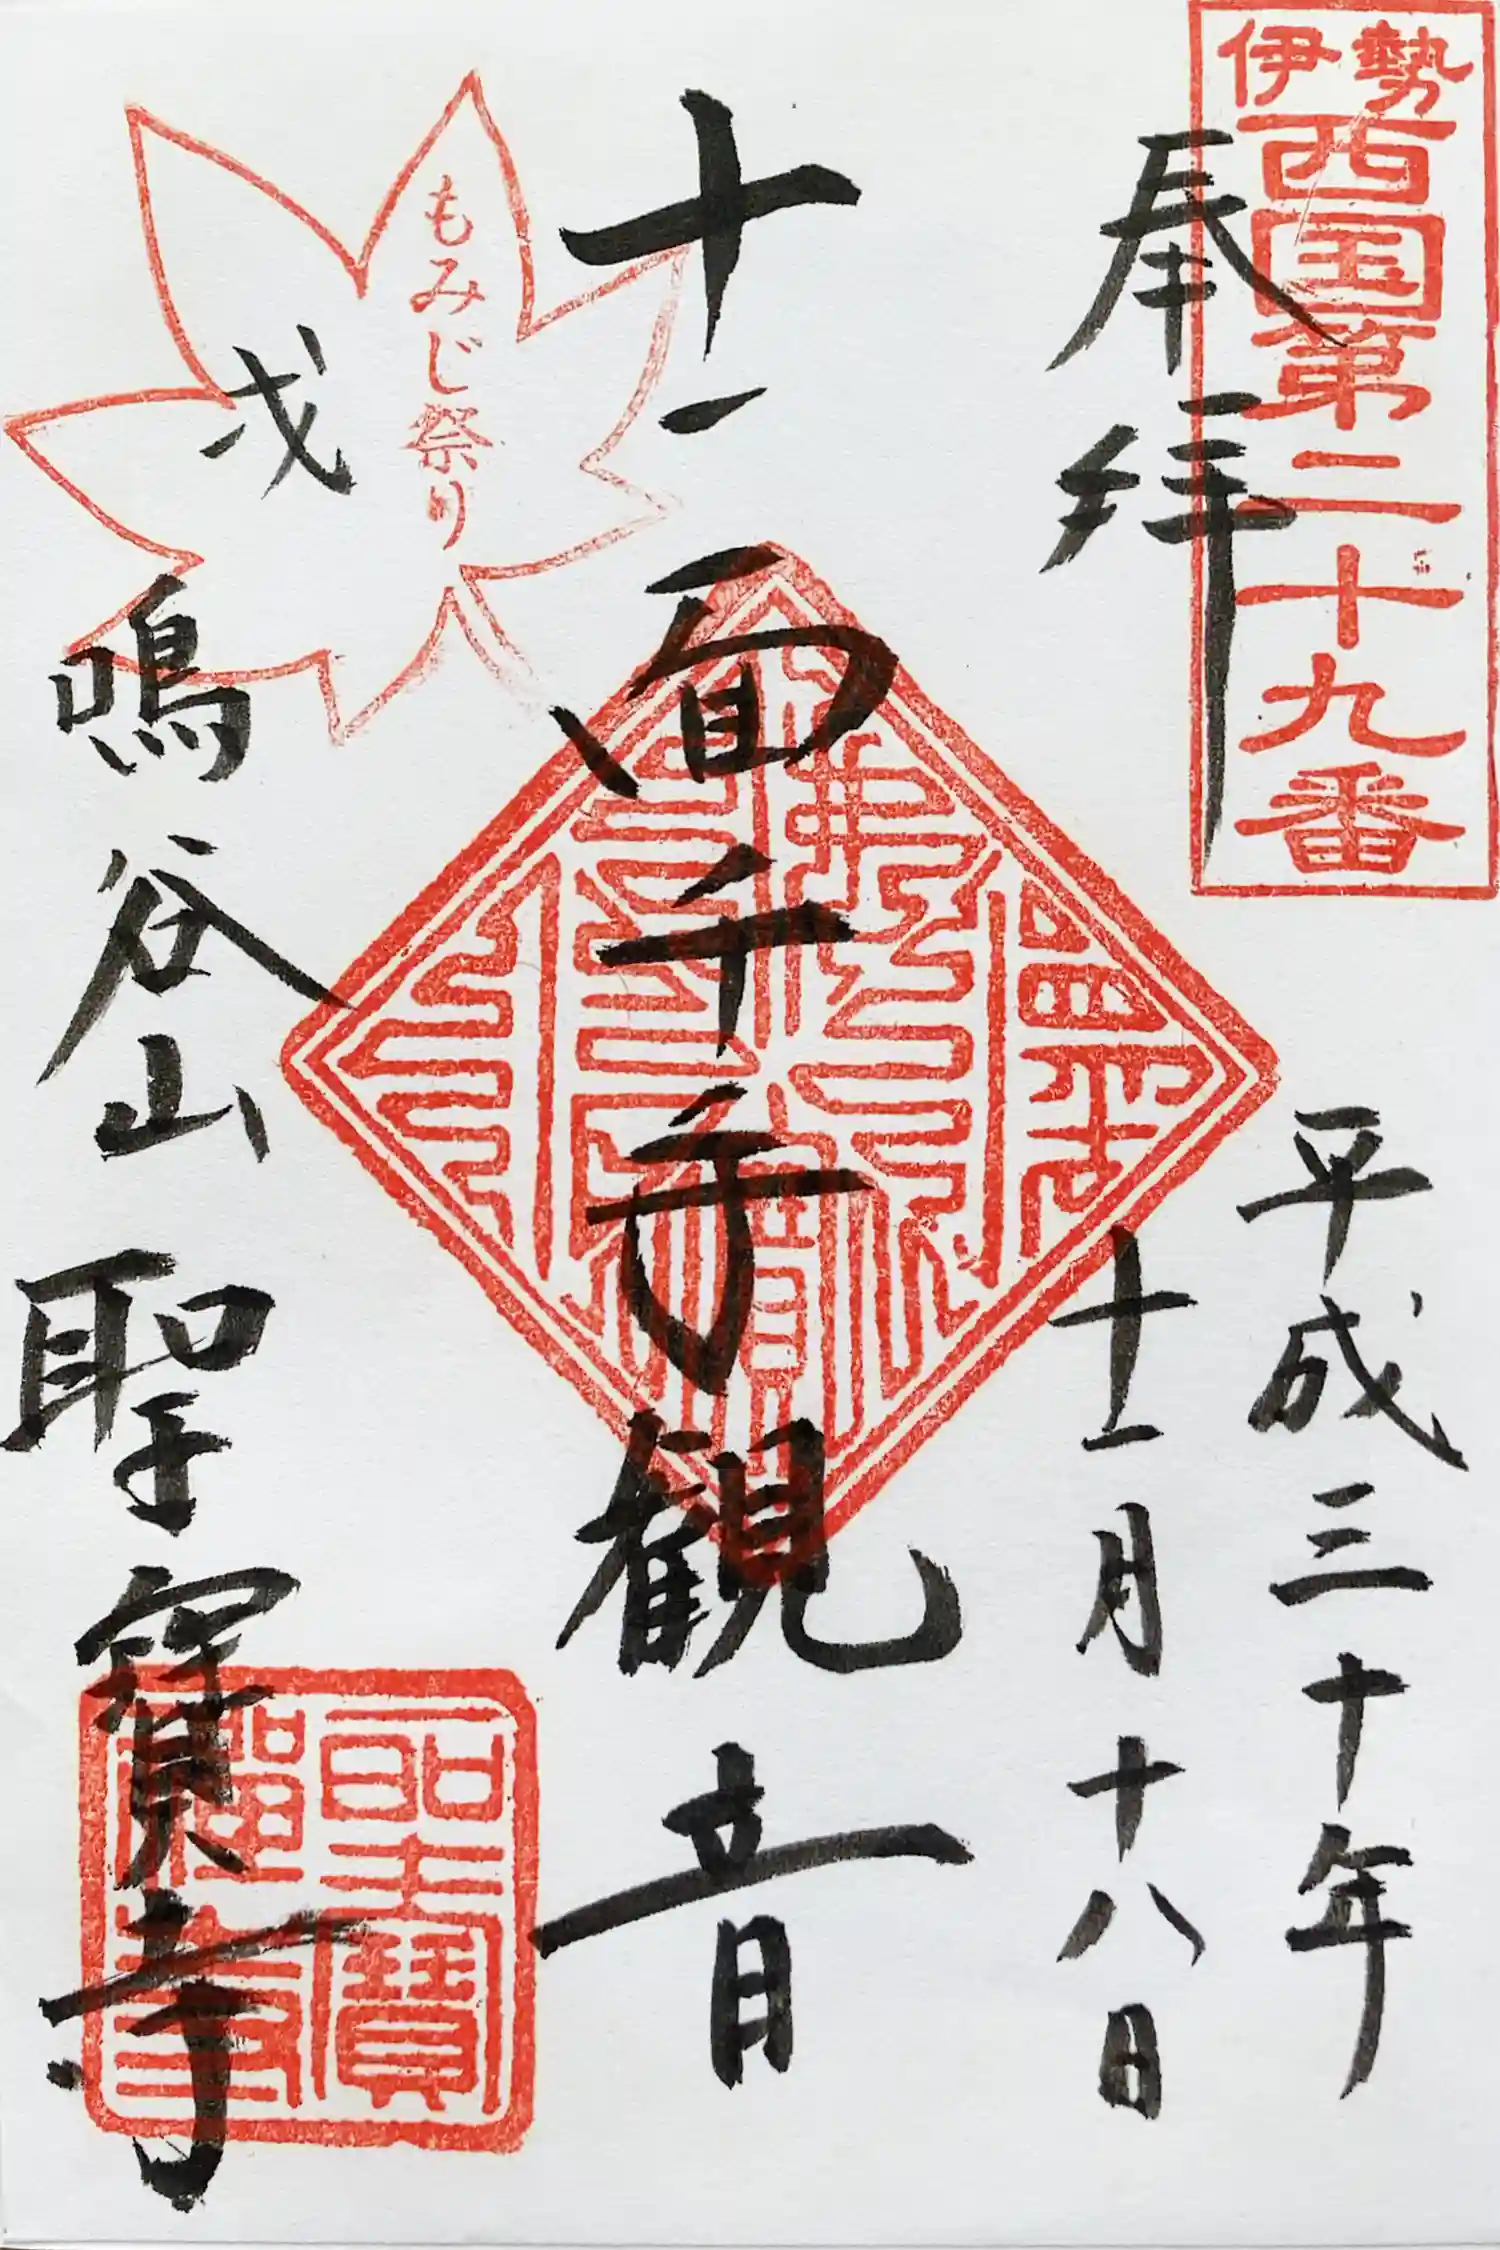 伊勢
西国第二十九番
奉拝
平成三十年
十一月十八日
十一面千手観音
もみじ祭り
戌
鳴谷山
聖寳寺
聖寳
禅寺